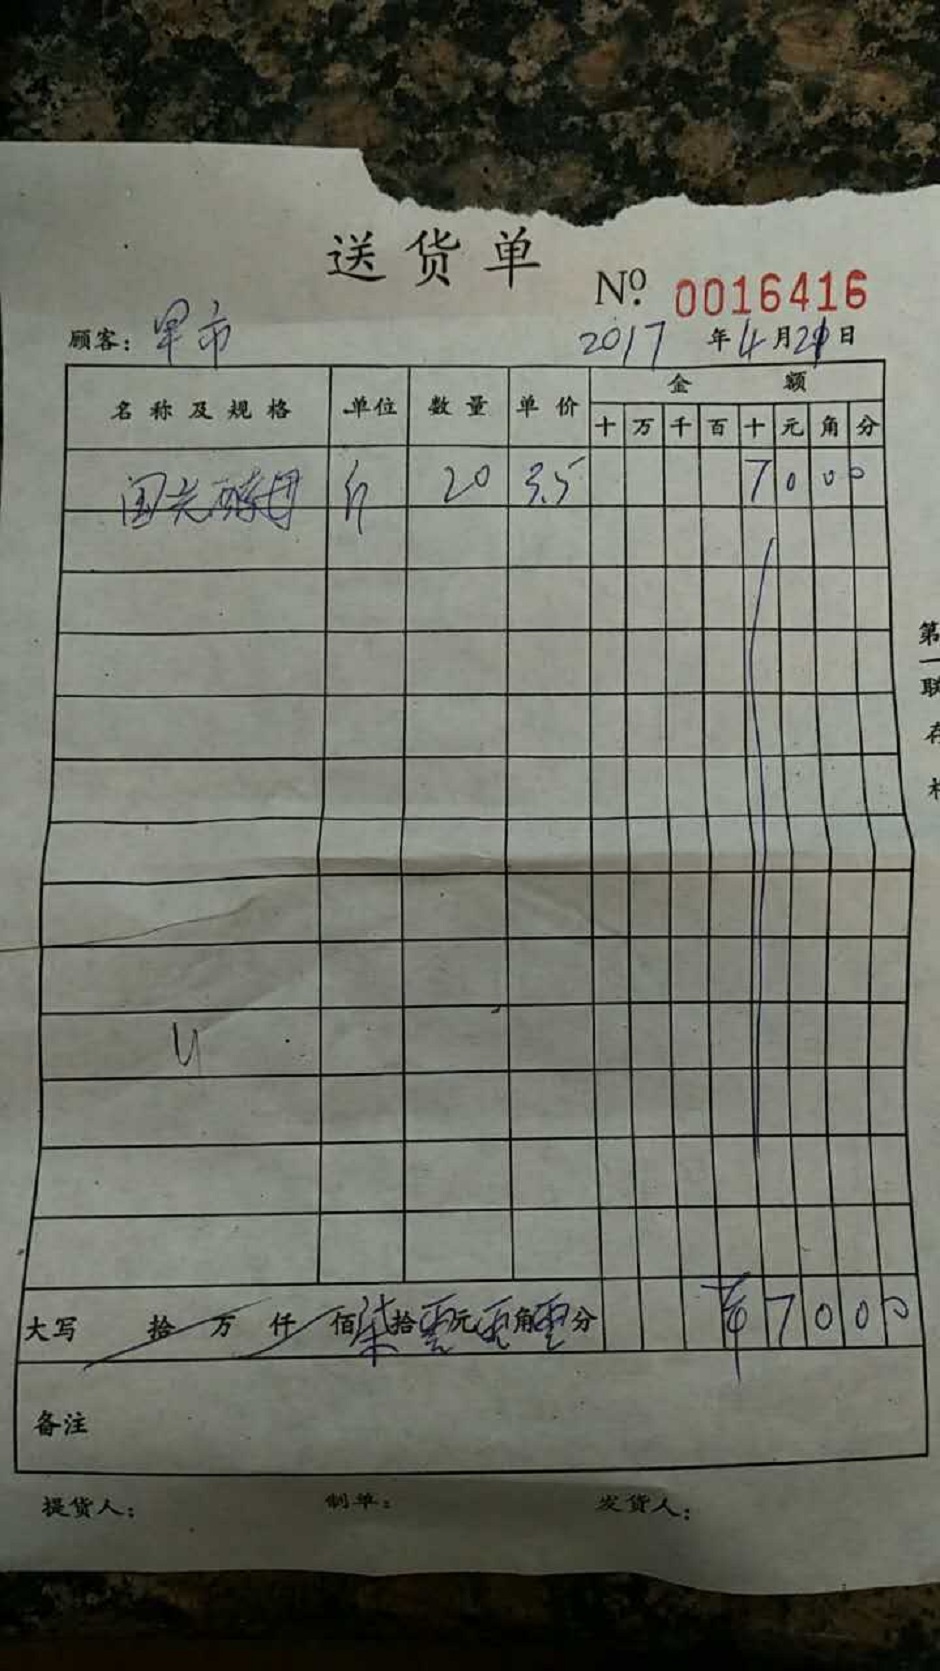 送货单
№ 0016416
顾客: 早市 2017 年 4 月 21 日
名称及规格 单位 数量 单价 金额
十 万 千 百 十 元 角 分
国光酵母 斤 20 3.5 7 0 0 0
第一联 存
大写 拾 万 仟 佰 柒 拾 零 元 零 角 零 分 7 0 0 0
备注
提货人: 制单: 发货人: